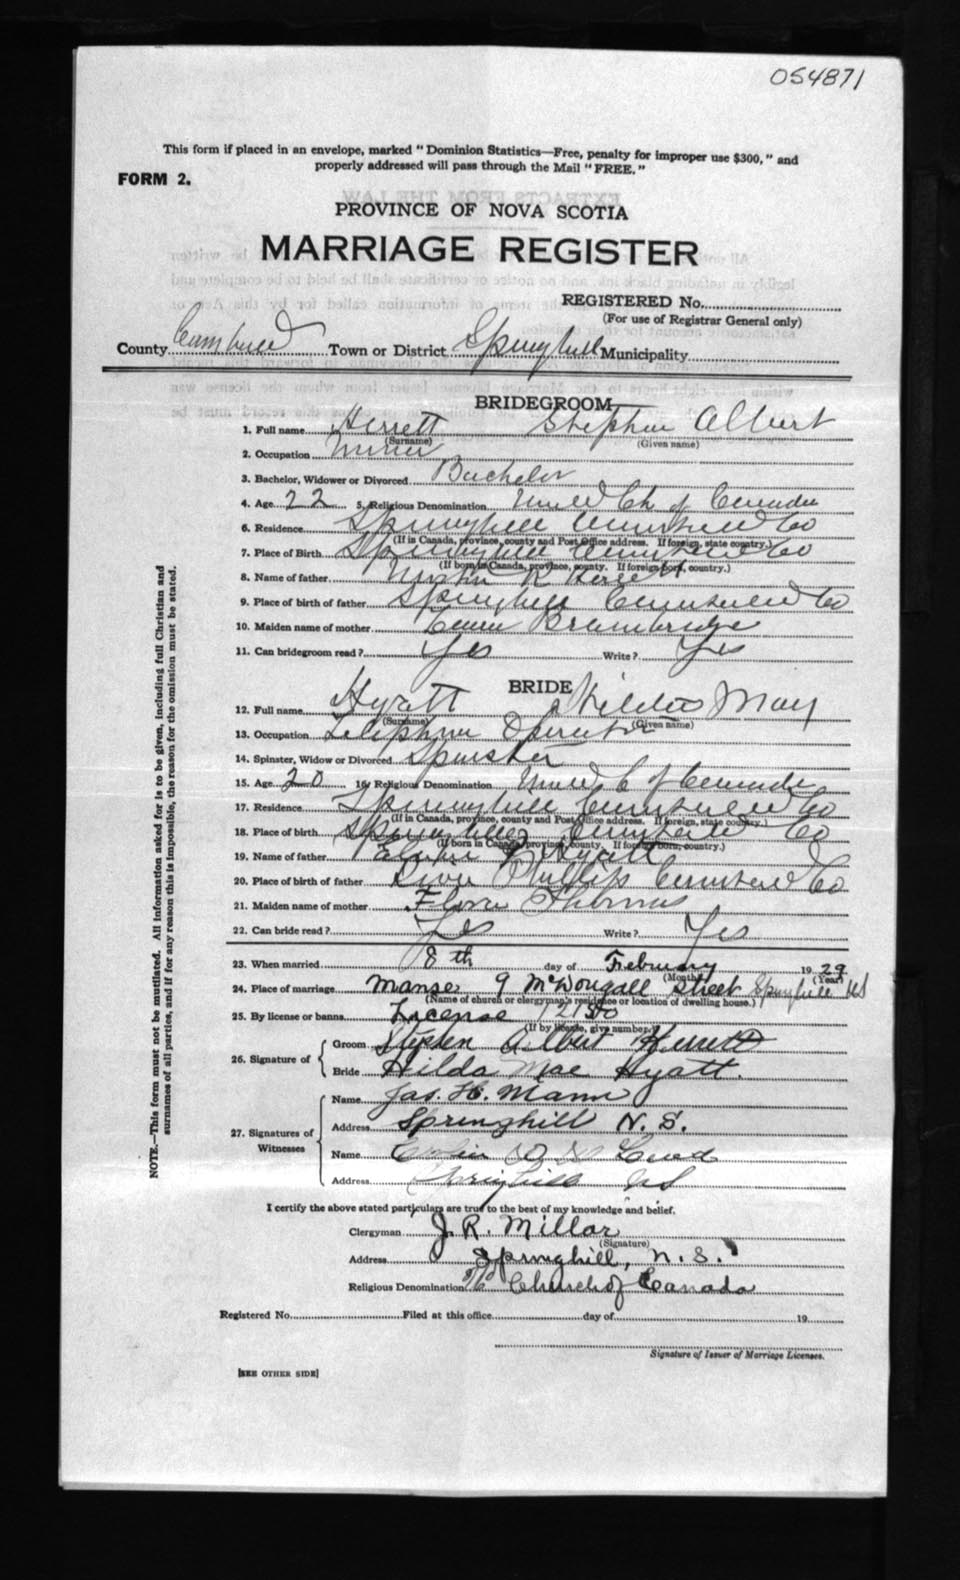 054871
This form if placed in an envelope, marked "Dominion Statistics—Free, penalty for improper use $300," and
properly addressed will pass through the Mail "FREE."
FORM 2.
PROVINCE OF NOVA SCOTIA
MARRIAGE REGISTER
REGISTERED No.
(For use of Registrar General only)
County Town or District Springhill Municipality
BRIDEGROOM
1. Full name Herrett Stephen Albert
(Surname) (Given name)
2. Occupation Miner
3. Bachelor, Widower or Divorced Bachelor
4. Age 22 5. Religious Denomination United Ch of Canada
6. Residence Springhill Cumberland Co
(If in Canada, province, county and Post Office address. If foreign, state country.)
7. Place of Birth Springhill Cumberland Co
(If born in Canada, province, county. If foreign born, country.)
8. Name of father R Herrett
9. Place of birth of father Springhill Cumberland Co
10. Maiden name of mother Brambridge
11. Can bridegroom read? Yes Write? Yes
BRIDE
12. Full name Hyatt Hilda May
(Surname) (Given name)
13. Occupation Telephone Operator
14. Spinster, Widow or Divorced Spinster
15. Age 20 16. Religious Denomination United C of Canada
17. Residence Springhill Cumberland Co
(If in Canada, province, county and Post Office address. If foreign, state country.)
18. Place of birth Springhill Cumberland Co
(If born in Canada, province, county. If foreign born, country.)
19. Name of father Hyatt
20. Place of birth of father River Phillips Cumberland Co
21. Maiden name of mother Flora Thomas
22. Can bride read? Yes Write? Yes
23. When married 8th day of February 1929
(Month) (Year)
24. Place of marriage Manse 9 McDougall Street Springhill NS
(Name of church or clergyman's residence or location of dwelling house.)
25. By license or banns License
(If by license, give number.)
26. Signature of
Groom Stephen Albert Herrett
Bride Hilda Mae Hyatt.
27. Signatures of Witnesses
Name Jas. H. Mann
Address Springhill N. S.
Name
Address Springhill NS
I certify the above stated particulars are true to the best of my knowledge and belief.
Clergyman J. R. Millar
(Signature)
Address Springhill, N. S.
Religious Denomination Church of Canada
Registered No. Filed at this office day of 19
Signature of Issuer of Marriage Licenses.
[SEE OTHER SIDE]
NOTE.—This form must not be mutilated. All information asked for is to be given, including full Christian and
surnames of all parties, and if for any reason this is impossible, the reason for the omission must be stated.